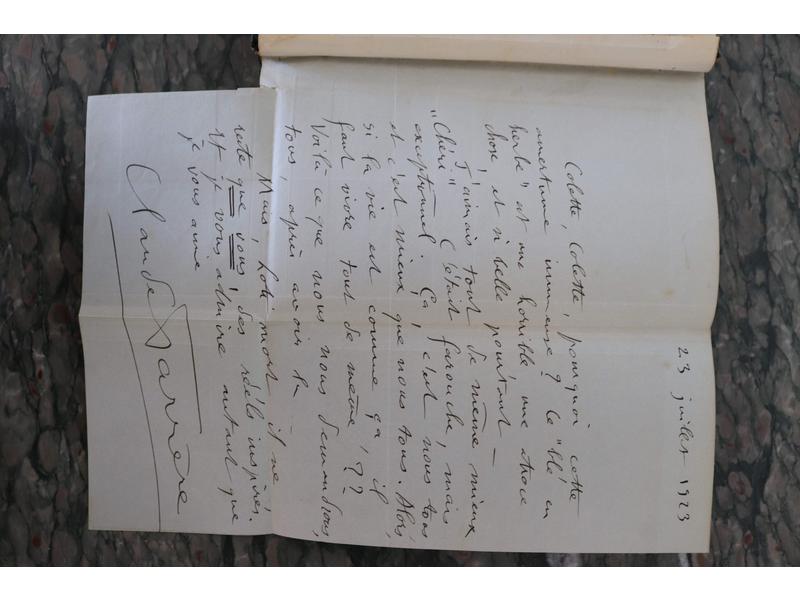 23 juillet 1923
Colette, Colette, pourquoi cette
amertume immense ? Le "blé en
herbe" est une horrible une atroce
chose et si belle pourtant –
J'aimais tout de même mieux
"Chéri". C'était farouche, mais
exceptionnel. Ça, c'est nous tous
et c'est mieux que nous tous. Alors,
si la vie est comme ça, il
faut vivre tout de même, ??
Voilà ce que nous nous demandons,
tous, après avoir lu
Mais, Loti mort il ne
reste que vous des réels inspirés.
Et je vous admire autant que
je vous aime
Claude Farrère